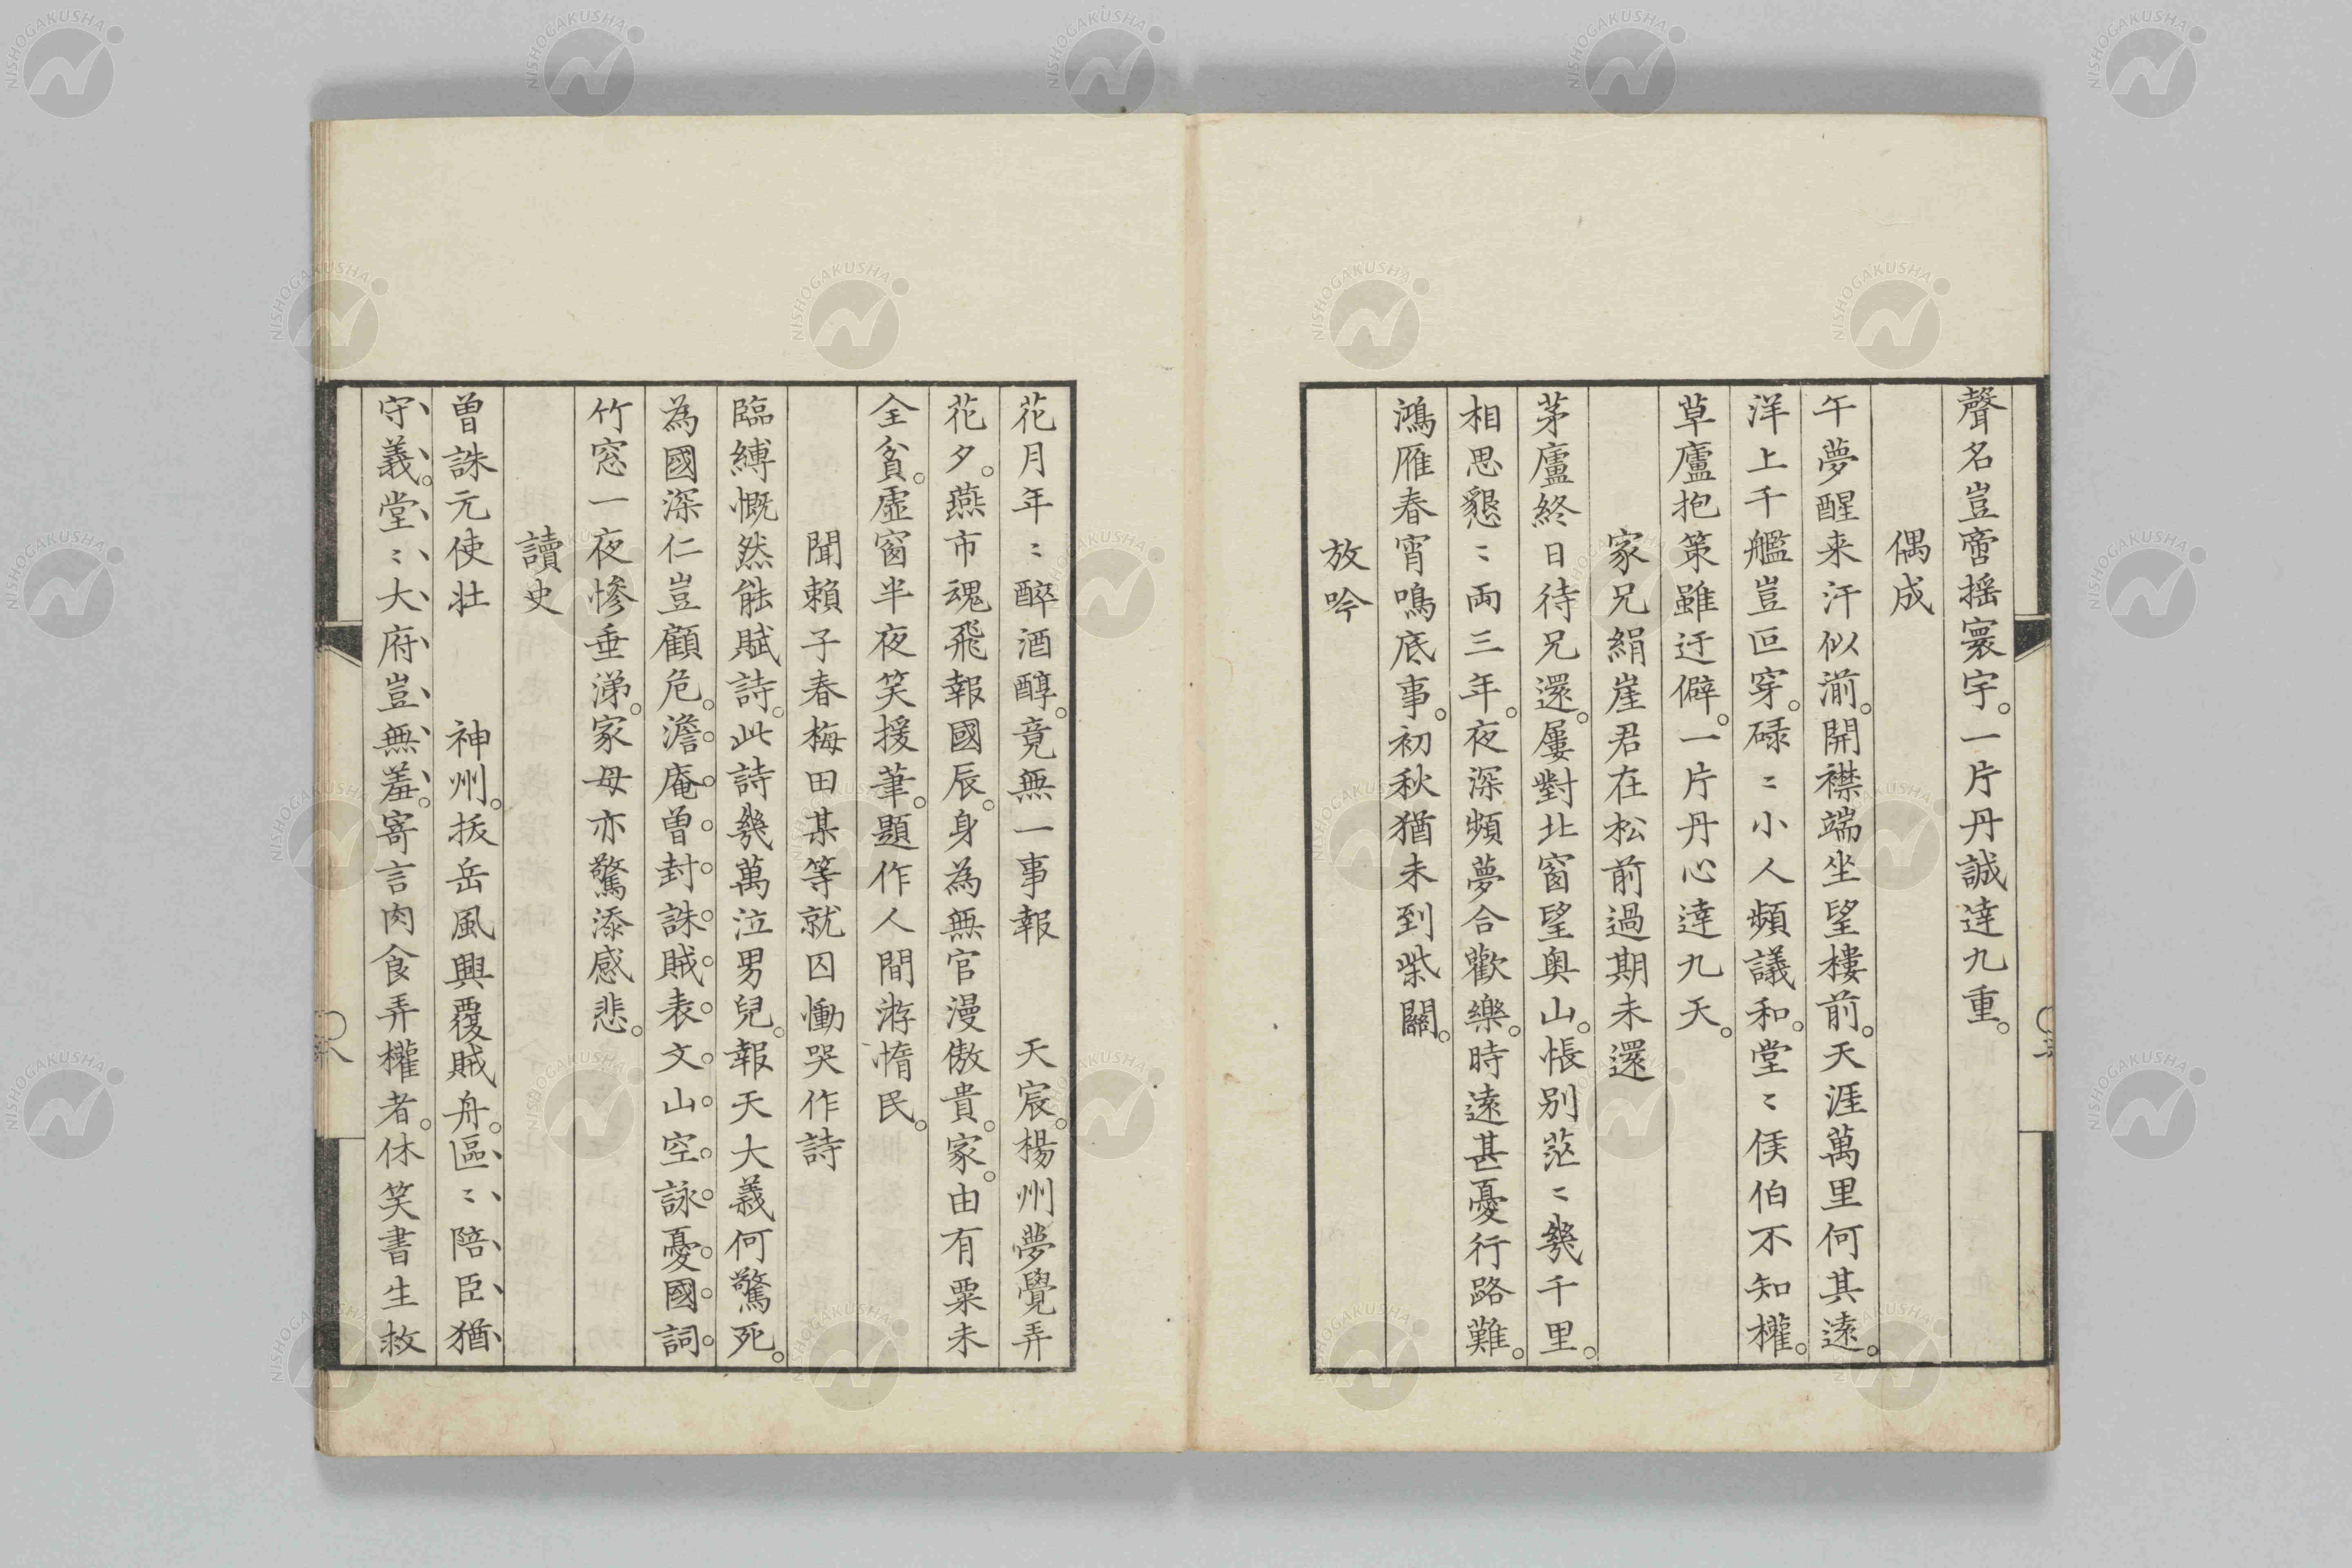 聲名豈啻揺寰宇。一片丹誠達九重。
偶成
午夢醒来汗似湔。開襟端坐望樓前。天涯萬里何其遠。
洋上千艦豈叵穿。碌〻小人頻議和。堂〻侯伯不知權。
草廬抱策雖迂僻。一片丹心達九天。
家兄絹崖君在松前過期未還
茅廬終日待兄還。屢對北窗望奥山。悵別茫〻幾千里。
相思懇〻両三年。夜深頻夢合歡樂。時遠甚憂行路難。
鴻雁春宵鳴底事。初秋猶未到柴關。
放吟
花月年〻醉酒醇。竟無一事報　天宸。楊州夢覺弄
花夕。燕市魂飛報國辰。身為無官漫傲貴。家。由有粟未
全貧。虛窗半夜笑援筆。題作人間游惰民。
聞賴子春梅田某等就囚慟哭作詩
臨縛慨然能賦詩。此詩幾萬泣男兒。報天大義何驚死。
為國深仁豈顧危。澹庵曽封誅賊表文山空詠憂國詞。
竹窓一夜慘垂涕。家母亦驚添感悲。
讀史
曽誅元使壮　神州。拔岳風興覆賊舟。區〻陪臣猶
守義。堂〻大府豈無羞。寄言肉食弄權者。休笑書生救
八
NISHOGAKUSHA